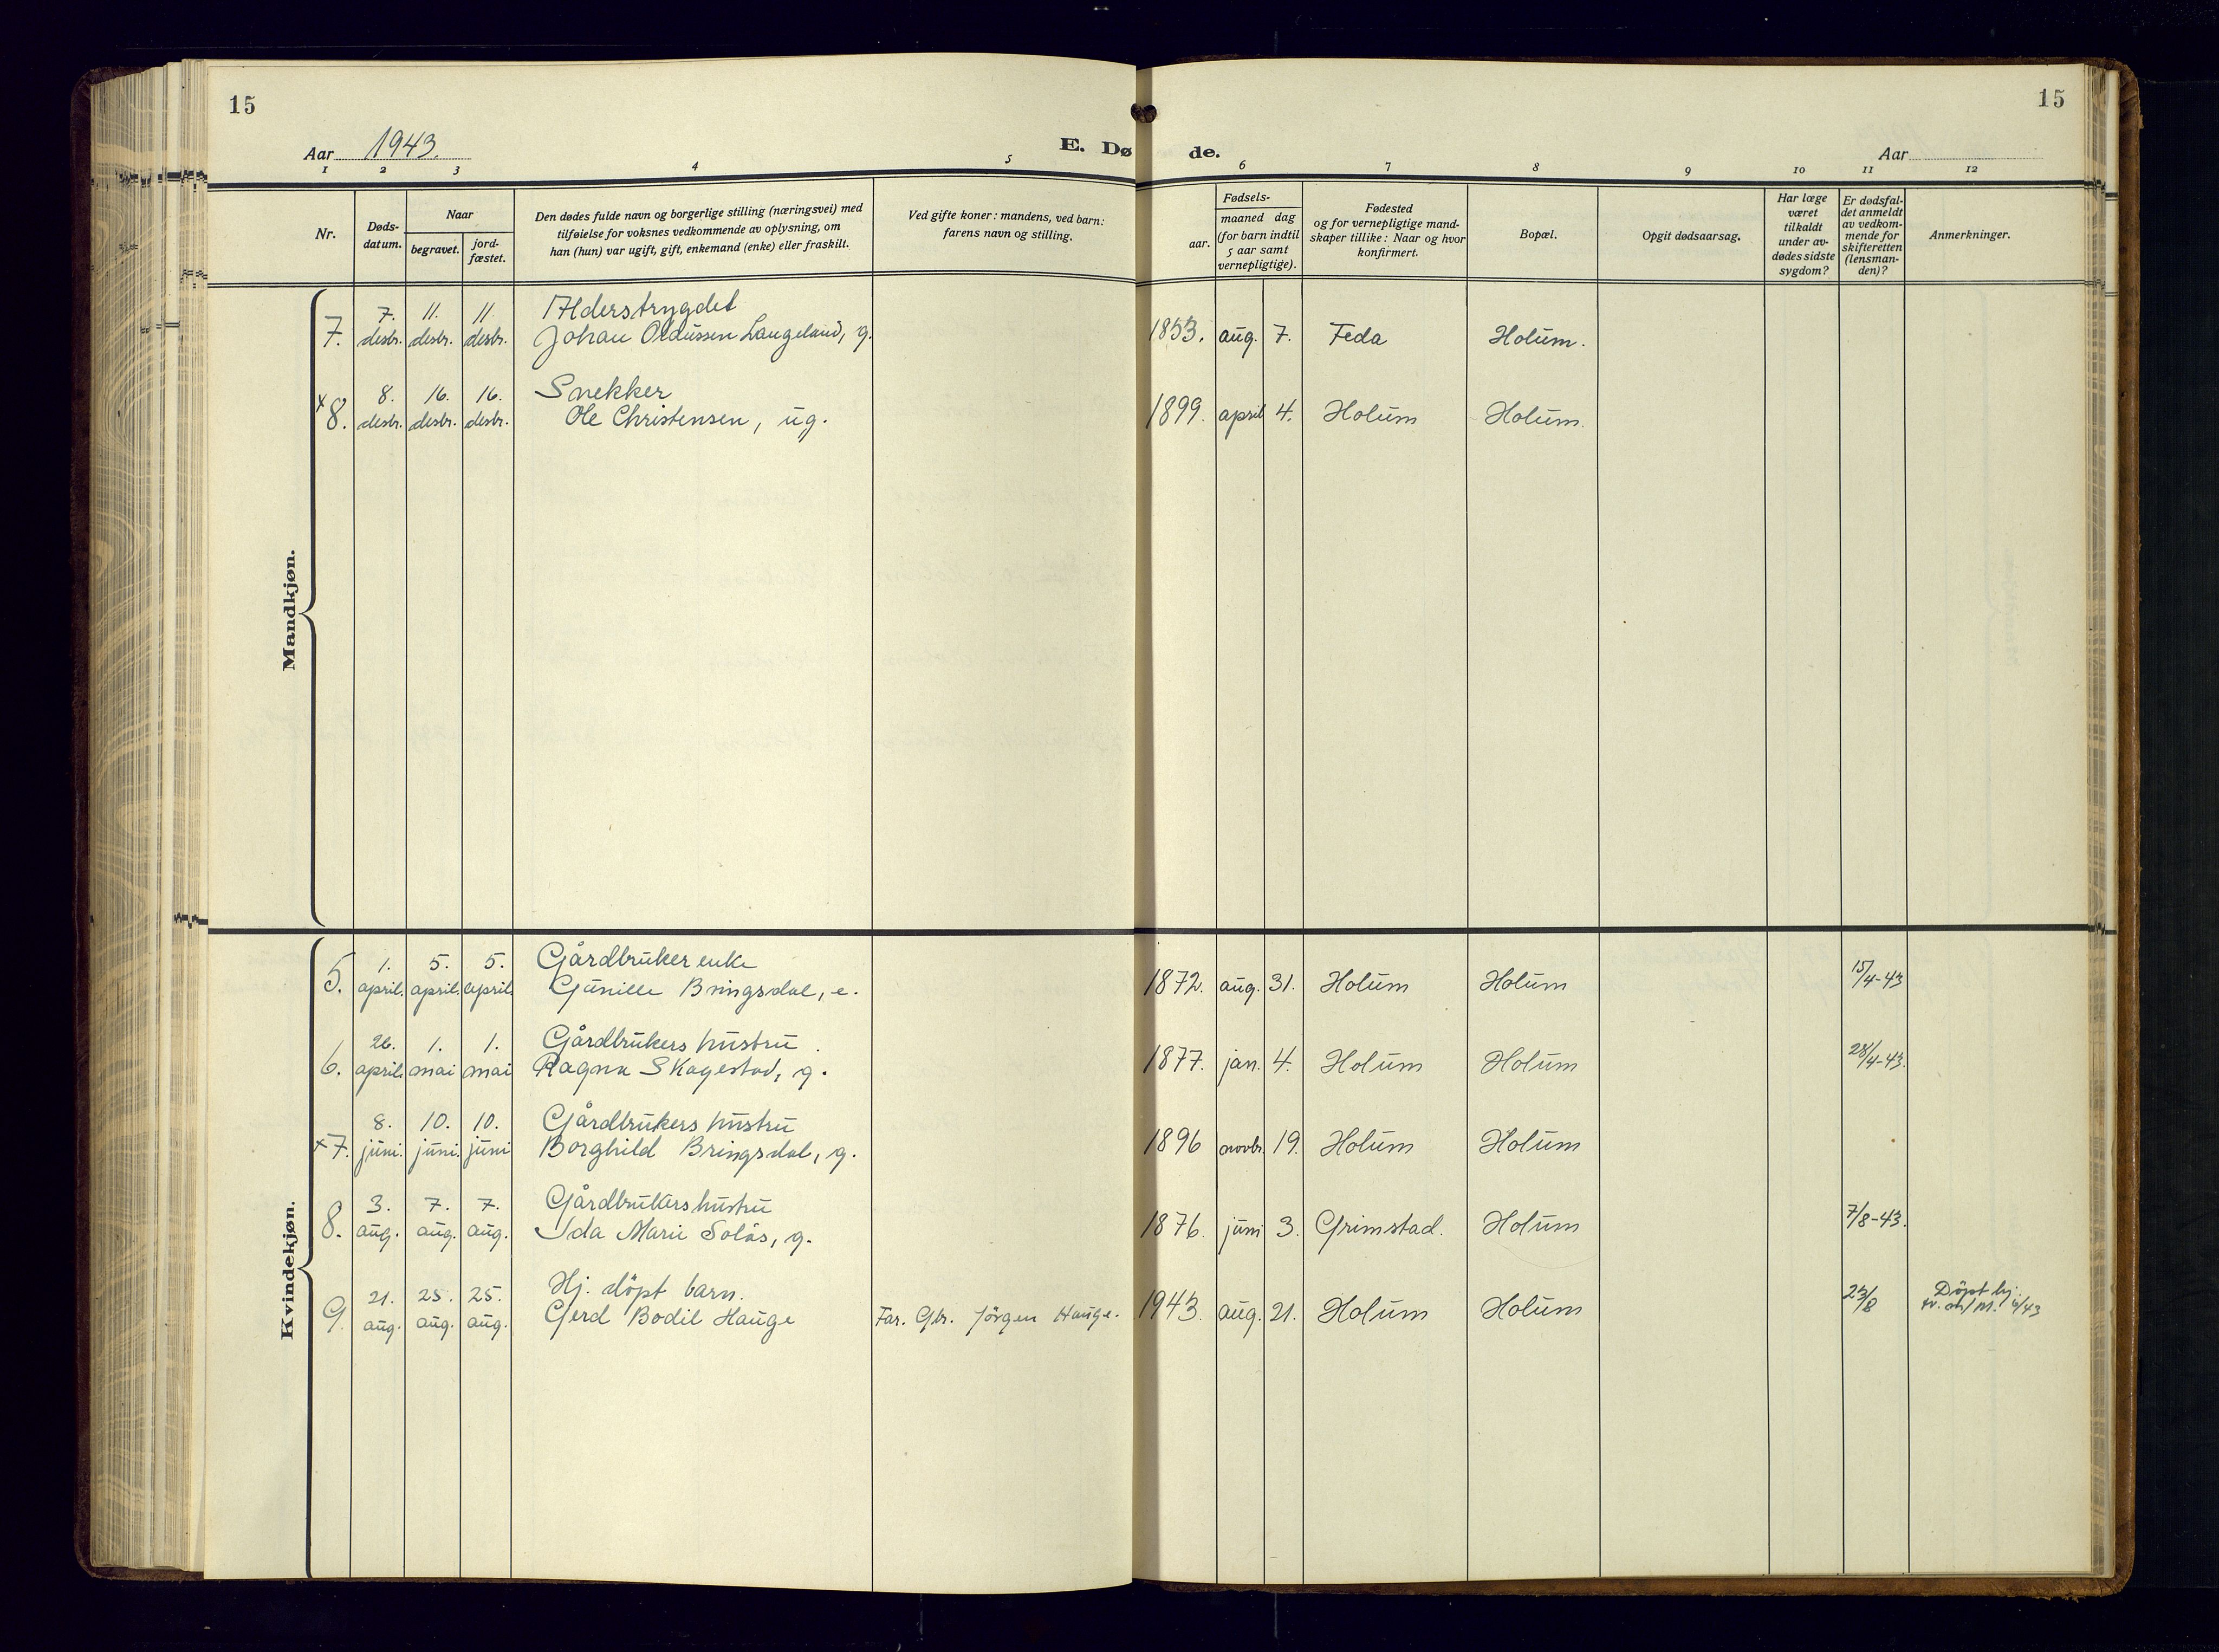 15
15
Aar 1943.
E. Døde.
Aar
1 2 3 4 5 6 7 8 9 10 11 12
Nr.
Døds-
datum.
Naar
begravet.
jord-
fæstet.
Den dødes fulde navn og borgerlige stilling (næringsvei) med
tilføielse for voksnes vedkommende av oplysning, om
han (hun) var ugift, gift, enkemand (enke) eller fraskilt.
Ved gifte koner: mandens, ved barn:
farens navn og stilling.
Fødsels-
aar.
maaned dag
(for barn indtil
5 aar samt
vernepligtige).
Fødested
og for vernepligtige mand-
skaper tillike: Naar og hvor
konfirmert.
Bopæl.
Opgit dødsaarsag.
Har læge
været
tilkaldt
under av-
dødes sidste
sygdom?
Er dødsfal-
det anmeldt
av vedkom-
mende for
skifteretten
(lensman-
den)?
Anmerkninger.
Mandkjøn.
7. 11. 11. Alderstrygdet
7. desbr. desbr. desbr. Johan Langeland, g. 1853. aug. 7. Feda Holum.
8. 16. 16. Snekker
x 8. desbr. desbr. desbr. Ole Christensen, ug. 1899. april 4. Holum Holum.
Kvindekjøn.
1. 5. 5. Gårdbruker enke
5. april. april. april. Gunille Bringsdal, e. 1872. aug. 31. Holum Holum 15/4-43
26. 1. 1. Gårdbrukers hustru
6. april. mai mai Ragna Skagestad, g. 1877. jan. 4. Holum Holum 28/4-43.
8. 10. 10. Gårdbrukers hustru
x 7. juni. juni. juni Borghild Bringsdal, g. 1896 novbr. 19. Holum Holum
3. 7. 7. Gårdbrukers hustru
8. aug. aug. aug. Ida Marie Solås, g. 1876. juni 3. Grimstad. Holum 7/8-43.
21. 25. 25. Hj. döpt barn.
9. aug. aug. aug. Gerd Bodil Hauge Far. Gbr. Jörgen Hauge. 1943. aug. 21. Holum Holum 23/8 Döpt hj.